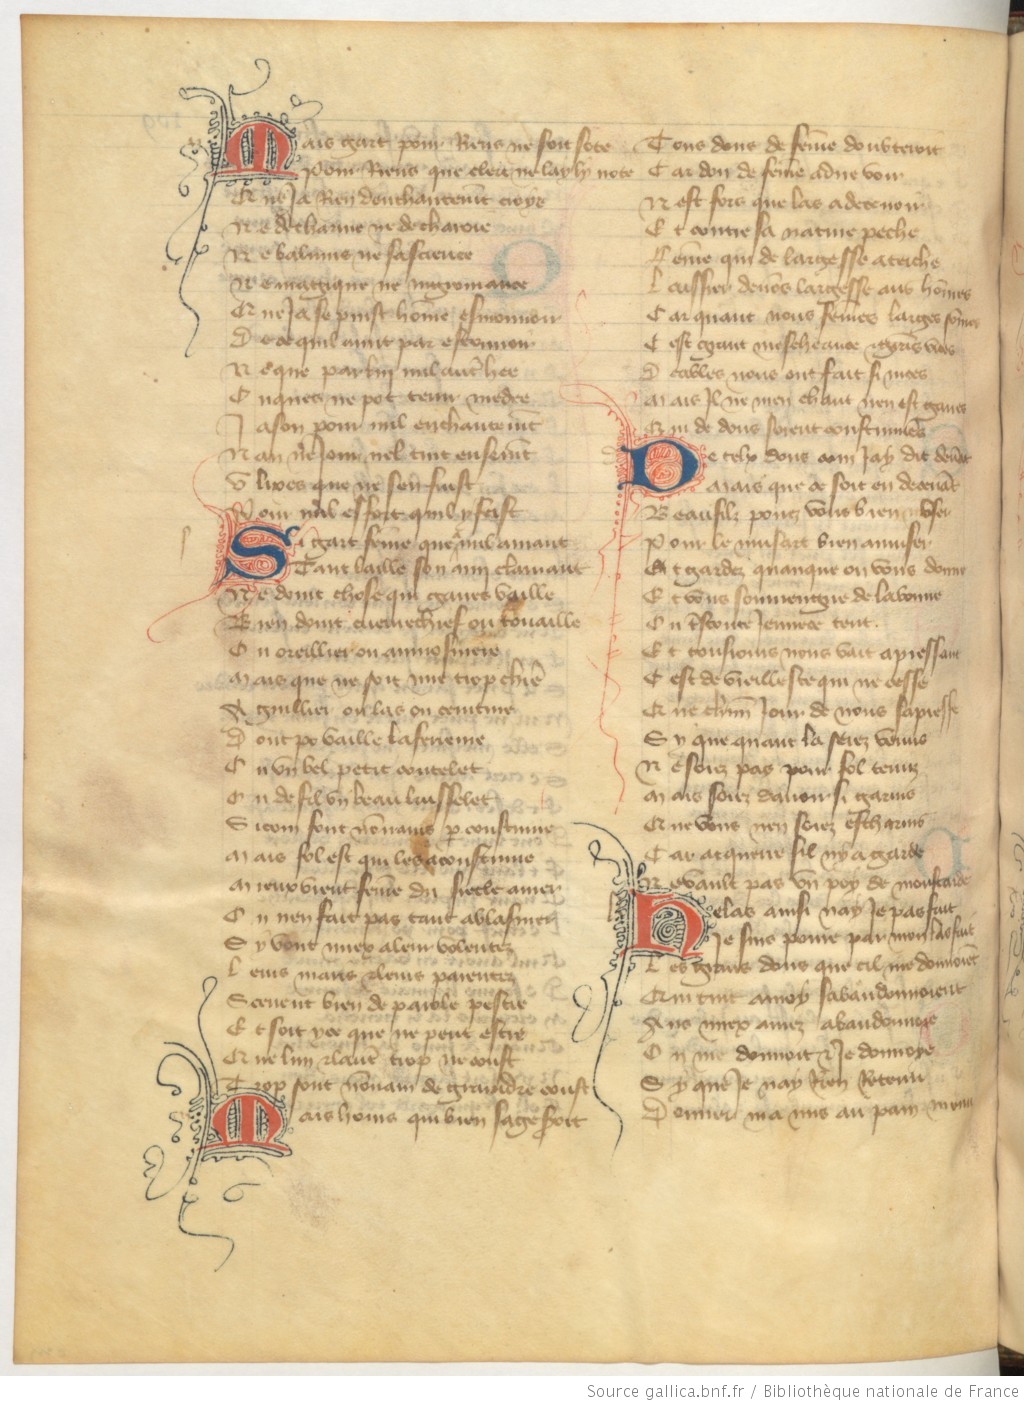 Mais gart pour Riens ne soit sote
Pour Riens que clerc ne lay ly note
Et ne Ja Rien denchantement croye
Ne de charme ne de charoie
Ne balenus ne sa science
Ne magique ne nigromance
Et ne Ja se puist home esmouvoir
De ce quil amit par estouvoir
Ne que par luy nul autre hee
Onques ne pot tenir medee
Jason pour nul enchantement
Nan ne tint ensement
Ulixes que ne sen fuist
Pour nul effort quil y feist
Si gart feme que a nul amant
Tant laille son amy clamant
Ne doint chose qui gaires vaille
Bien doint cuevrechief ou touaille
Ou oreillier ou aumosniere
Mais que ne soit mie trop chiere
Aguillier ou las ou ceinture
Dont po vaille la ferreure
Ou un bel petit coutelet
Ou de fil un beau luisselet
Si com font nonnains par coustume
Mais fol est qui les acoustume
Mieux vient feme du siecle amer
On nen fait pas tant a blasmer
Sy vont miex a leur volentez
Leurs maris et leurs parentez
Scevent bien de parole pestre
Et soit que ne peut estre
Que lun et lautre trop ne coust
Trop sont nonnain de graindre coust
Mais homs qui bien sage seroit
Tous dons de feme doubteroit
Car don de feme a dire voir
Nest fors que las a decevoir
Et contre sa nature peche
Feme qui de largesse a teche
Laissier devons largesse aus homes
Car quant nous femes larges somes
Cest grant mescheance et grans vices
Deables nous ont fait si nices
Mais Il ne men chaut nen est gaires
Qui de dons soient coustumieres
De telx dons com Jay dit devant
Mais que ce soit en decevant
Beau filz pouez vous bien user
Pour le musart bien amuser
Et gardez quanque on vous donne
Et vous souviengne de la bonne
Ou tent.
Et tousiours nous vait apressant
Cest de vieillesce qui ne cesse
Que chascun Jour de nous sapresse
Sy que quant la serez venus
Ne soiez pas pour fol tenuz
Mais soiez davoir si garnis
Que vous nen soiez escharnis
Car acquerre sil ny a garde
Ne vault pas un poy de moustarde
Helas ainsi nay Je pas fait
Je suis povre par mon las fait
Les grans dons que cil me donnoient
Qui tuit a moy sabandonnoient
Aus miex amez abandonnoye
On me donnoit et Je donnoye
Sy que Je nay Rien Retenu
Donner ma mis au pain menu